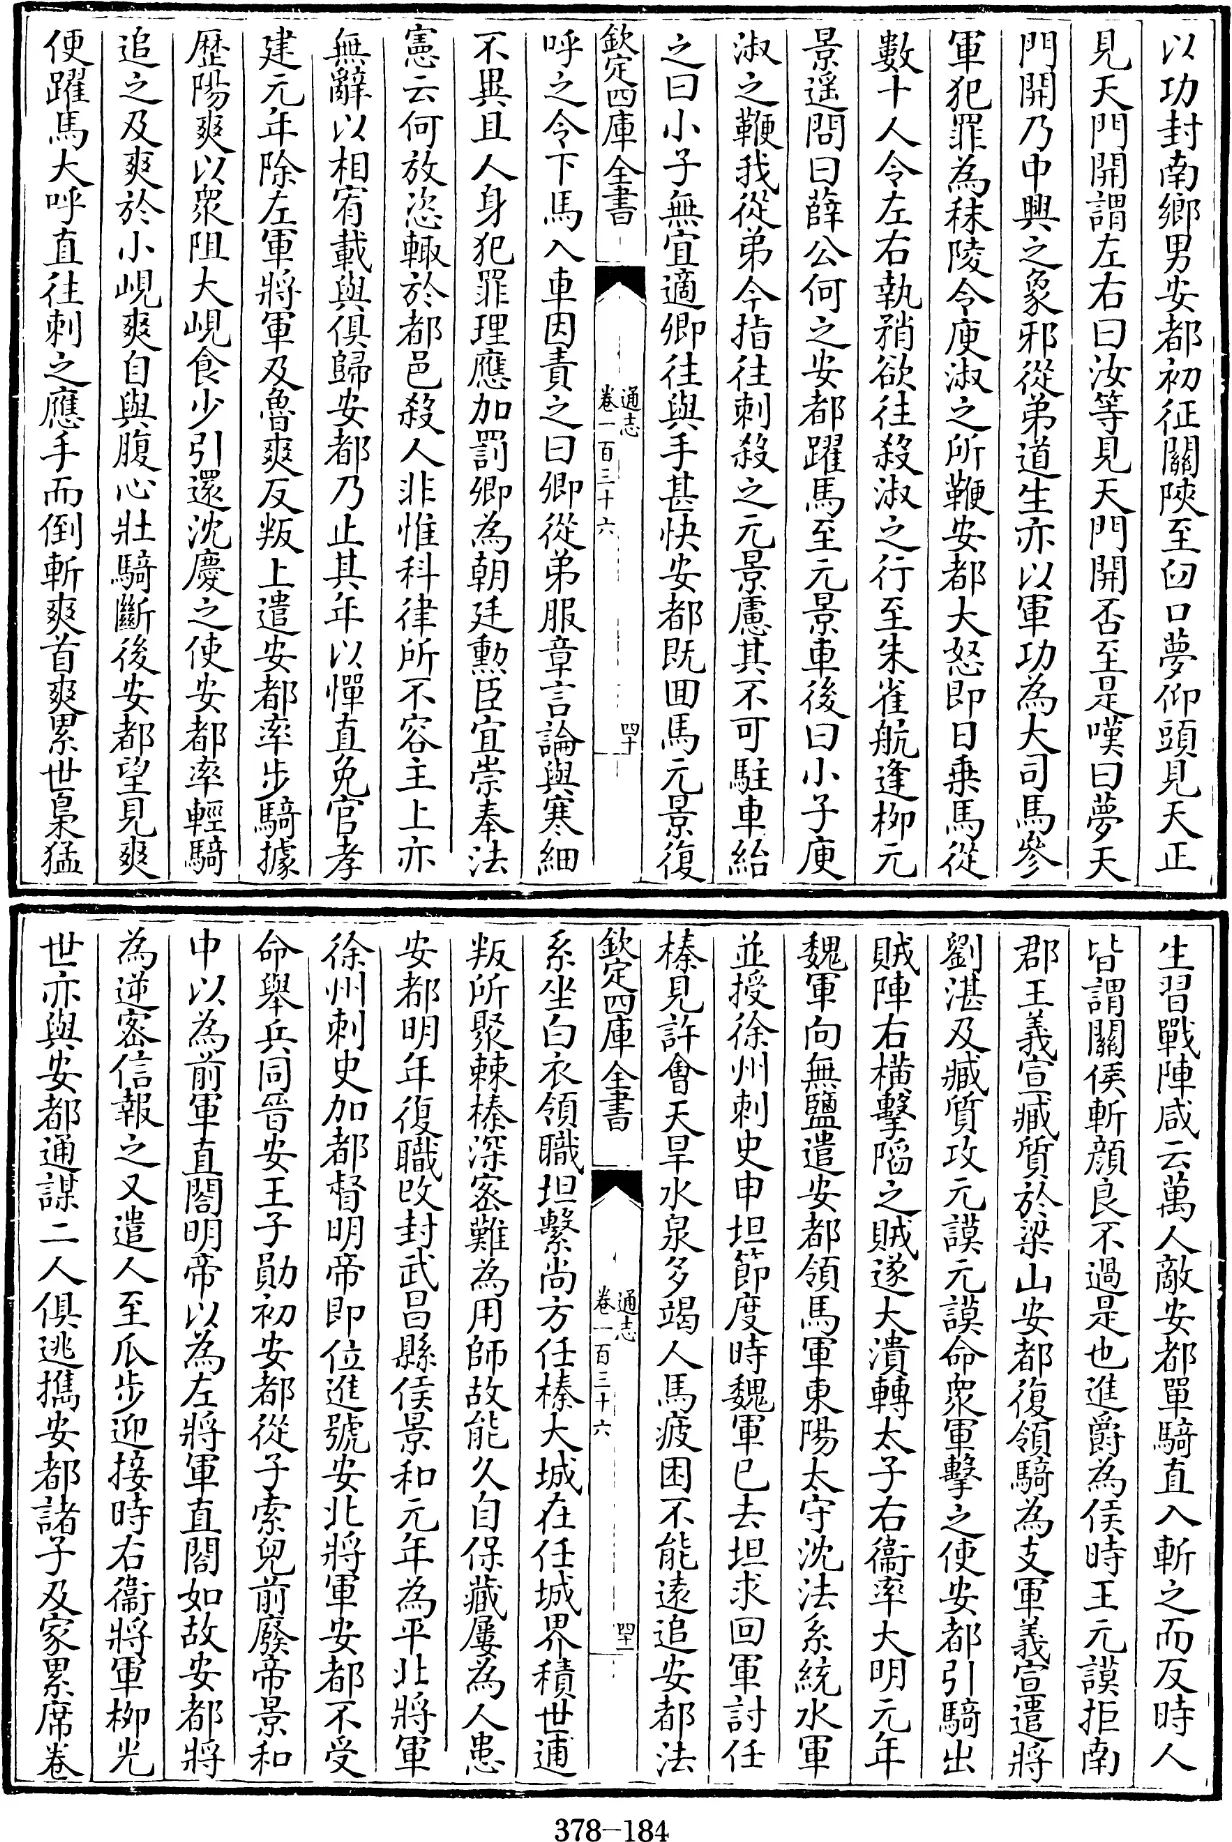 以功封南鄉男安都初征關陝至臼口夢仰頭見天正
見天門開謂左右曰汝等見天門開否至是嘆曰夢天
門開乃中興之象邪從弟道生亦以軍功為大司馬參
軍犯罪為秣陵令庾淑之所鞭安都大怒即日乗馬從
數十人令左右執矟欲往殺淑之行至朱雀航逢柳元
景遥問曰薛公何之安都躍馬至元景車後曰小子庾
淑之鞭我從弟今指往刺殺之元景慮其不可駐車紿
之曰小子無宜適卿往與手甚快安都既囬馬元景復
欽定四庫全書
通志
卷一百三十六
四十
呼之令下馬入車因責之曰卿從弟服章言論與寒細
不異且人身犯罪理應加罰卿為朝廷勲臣宜崇奉法
憲云何放恣輙於都邑殺人非惟科律所不容主上亦
無辭以相宥載與俱歸安都乃止其年以憚直免官孝
建元年除左軍將軍及魯爽反叛上遣安都率步騎據
歴陽爽以衆阻大峴食少引還沈慶之使安都率輕騎
追之及爽於小峴爽自與腹心壯騎斷後安都望見爽
便躍馬大呼直往刺之應手而倒斬爽首爽累世梟猛
生習戰陣咸云萬人敵安都單騎直入斬之而反時人
皆謂關侯斬顔良不過是也進爵為侯時王元謨拒南
郡王義宣臧質於梁山安都復領騎為支軍義宣遣將
劉湛及臧質攻元謨元謨命衆軍擊之使安都引騎出
賊陣右横擊陷之賊遂大潰轉太子右衞率大明元年
魏軍向無鹽遣安都領馬軍東陽太守沈法系統水軍
並授徐州刺史申坦節度時魏軍已去坦求回軍討任
榛見許會天旱水泉多竭人馬疲困不能遠追安都法
欽定四庫全書
通志
卷一百三十六
四十一
系坐白衣領職坦繫尚方任榛大城在任城界積世逋
叛所聚棘榛深宻難為用師故能久自保藏屢為人患
安都明年復職改封武昌縣侯景和元年為平北將軍
徐州刺史加都督明帝即位進號安北將軍安都不受
命舉兵同晉安王子勛初安都從子索兒前廢帝景和
中以為前軍直閤明帝以為左將軍直閤如故安都將
為逆宻信報之又遣人至瓜步迎接時右衞將軍柳光
世亦與安都通謀二人俱逃擕安都諸子及家累席卷
378-184